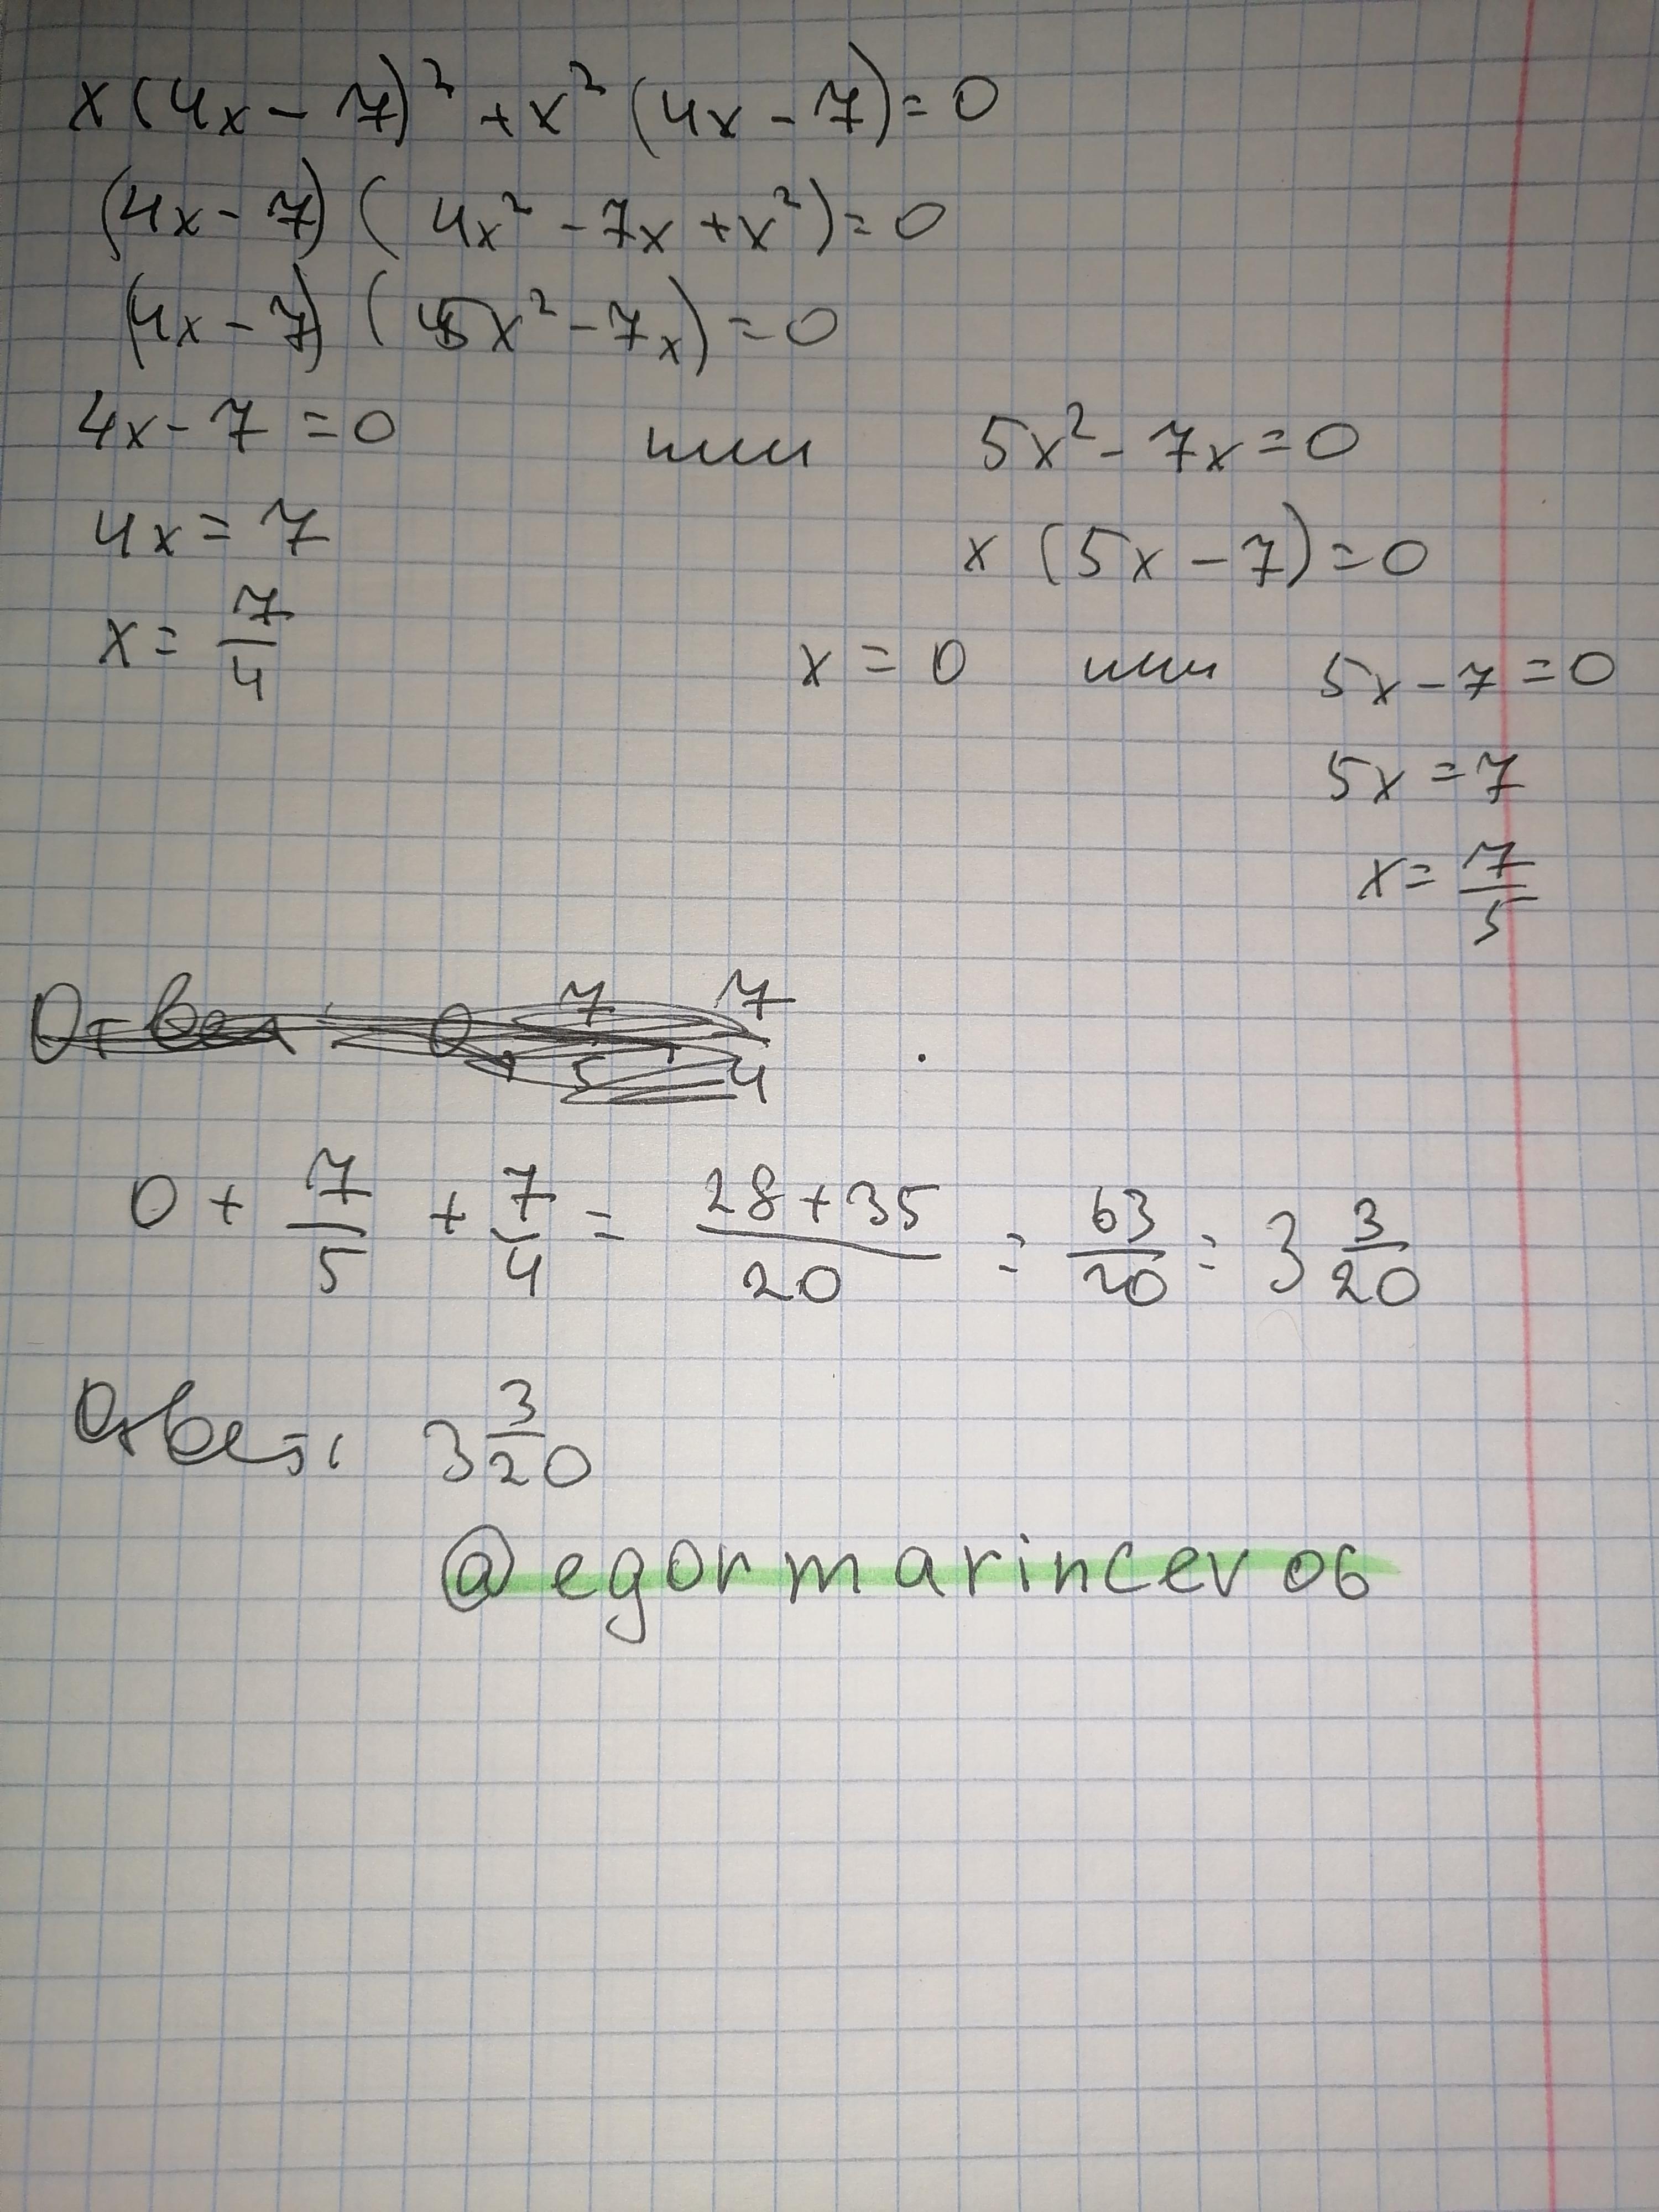 x(4x-7)²+x²(4x-7)=0
(4x-7)(4x²-7x+x²)=0
(4x-7)(5x²-7x)=0
4x-7=0 или 5x²-7x=0
4x=7 x(5x-7)=0
x=7/4 x=0 или 5x-7=0
5x=7
x=7/5
Ответ: 0, 7/5, 7/4
0+7/5+7/4=(28+35)/20=63/20=3 3/20
Ответ: 3 3/20
@egormarincev06